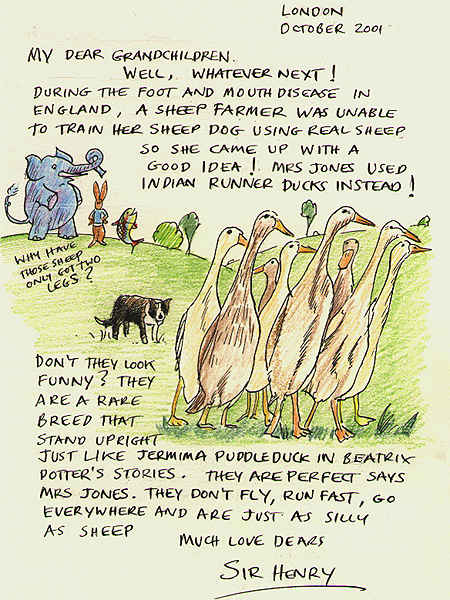 LONDON
OCTOBER 2001
MY DEAR GRANDCHILDREN.
WELL, WHATEVER NEXT!
DURING THE FOOT AND MOUTH DISEASE IN
ENGLAND, A SHEEP FARMER WAS UNABLE
TO TRAIN HER SHEEP DOG USING REAL SHEEP
SO SHE CAME UP WITH A
GOOD IDEA! MRS JONES USED
INDIAN RUNNER DUCKS INSTEAD!
WHY HAVE
THOSE SHEEP
ONLY GOT TWO
LEGS?
DON'T THEY LOOK
FUNNY? THEY
ARE A RARE
BREED THAT
STAND UPRIGHT
JUST LIKE JERMIMA PUDDLEDUCK IN BEATRIX
POTTER'S STORIES. THEY ARE PERFECT SAYS
MRS JONES. THEY DON'T FLY, RUN FAST, GO
EVERYWHERE AND ARE JUST AS SILLY
AS SHEEP
MUCH LOVE DEARS
SIR HENRY